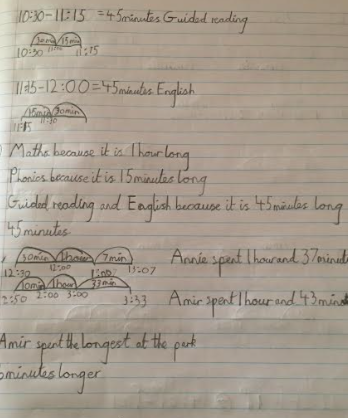 10:30-11:15 =45minutes Guided reading
30min 15min
10:30 11:00 11:15
11:15-12:00=45minutes English
15min 30min
11:15 11:30
Maths because it is 1hour long
Phonics because it is 15minutes long
Guided reading and English because it is 45minutes long
45minutes
30min 1hour 7min Annie spent 1hour and 37minute
12:30 12:00 13:07
10min 1hour 33min Amir spent 1hour and 43minut
2:50 2:00 3:00 3:33
Amir spent the longest at the park
minutes longer